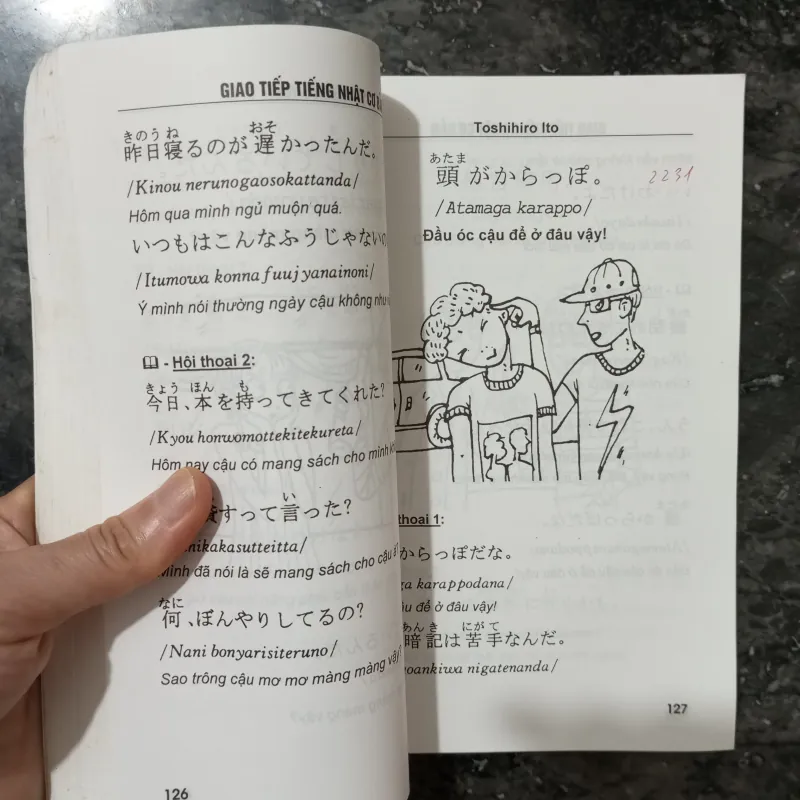 GIAO TIẾP TIẾNG NHẬT CƠ
きのう ね おそ
昨日寝るのが遅かったんだ。
/Kinou nerunogaosokattanda/
Hôm qua mình ngủ muộn quá.
いつもはこんなふうじゃないの
/Itumowa konna fuuj yanainoni/
Ý mình nói thường ngày cậu không như
- Hội thoại 2:
きょう ほん も
今日、本を持ってきてくれた?
/Kyou honwomottekitekureta/
Hôm nay cậu có mang sách cho mình
い
すって言った?
kakasutteitta/
Mình đã nói là sẽ mang sách cho cậu
なに
何、ぼんやりしてるの?
/Nani bonyarisiteruno/
Sao trông cậu mơ mơ màng màng vậy?
126
Toshihiro Ito
あたま
頭がからっぽ。
2231
/Atamaga karappo/
Đầu óc cậu để ở đâu vậy!
thoại 1:
からっぽだな。
karappodana/
để ở đâu vậy!
あんき にがて
暗記は苦手なんだ。
oankiwa nigatenanda/
127